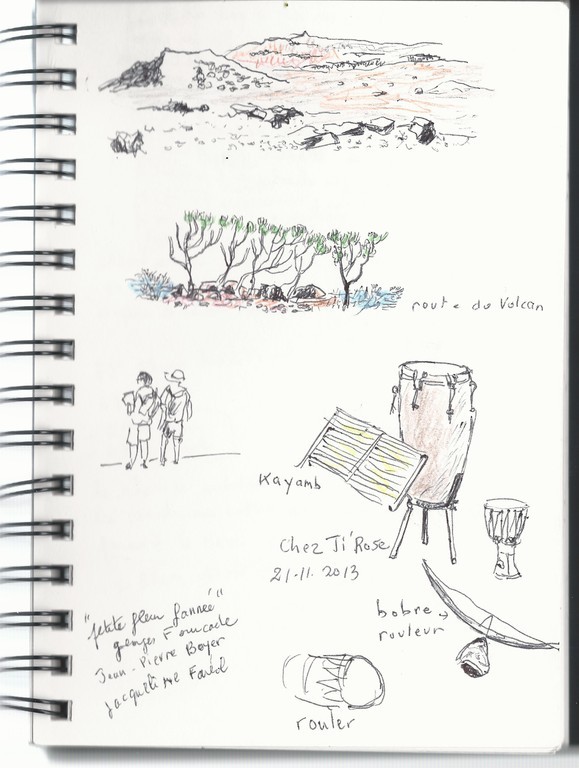 route du Volcan
Kayamb
Chez Ti'Rose
21-11. 2013
bobre →
rouleur
"petite fleur fannée"
georges Fourcade
Jean-Pierre Boyer
Jacqueline Farel
rouler